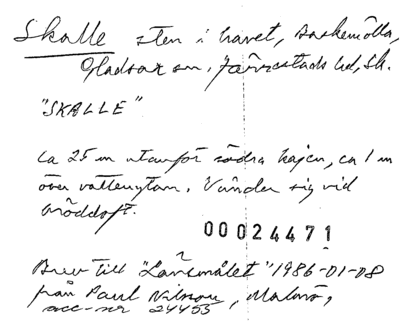 Skalle sten i havet, Baskemölla,
Gladsax sn, Järrestads hd, Sk.
"SKALLE"
ca 25 m utanför södra kajen, ca 1 m
över vattenytan. Vänder sig vid
bröddoft.
00024471
Brev till "Länsmålet" 1986-01-08
från Paul Nilsson, Malmö,
acc-nr 24455